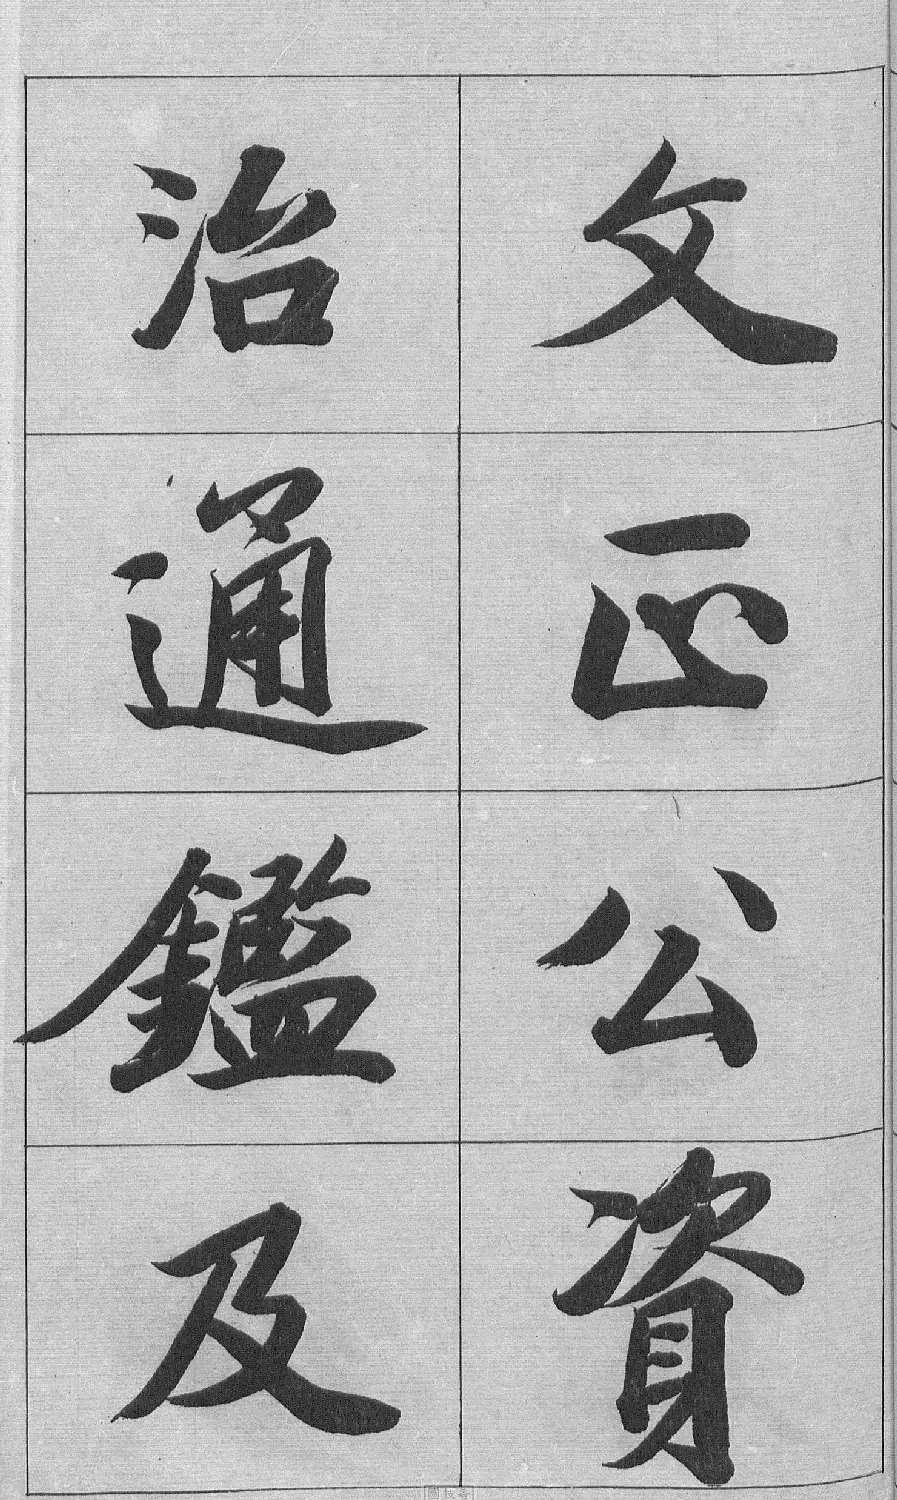 文正公資
治通鑑及